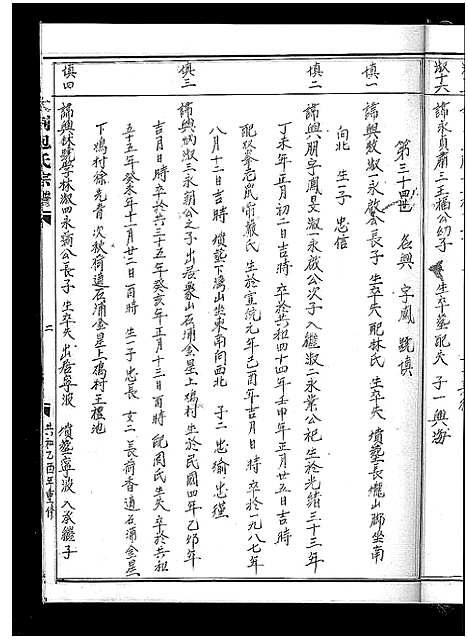 淑十六
諱永貞肅三王福公幼子 生卒墓配失 子一興海
第三十四世 名興 字鳳 號填
填一
諱興 淑一永 公長子 生卒失 配林氏 生卒失 墳墓長 山腳坐南
向北 生一子 忠信
填二
諱興朋字鳳旻淑一永啟公次子入繼淑二永業公祀 生於光緒三十三年
丁未年正月初二日吉時 卒於共和四十四年壬申年正月廿五日吉時
配 老鼠 嚴氏 生於宣統元年己酉年吉月日時 卒於一九八七年
八月十二日吉時 墳墓下 山坐東南向西北 子二 忠 忠
填三
諱興 淑三永朝公之子 出居象山石浦金星上塢村 生於民國四年乙卯年
吉月日時卒於共和三十五年癸亥年正月十三日酉時 配周氏 生失 卒於共和
五十五年癸未年十一月廿二日酉時 生一子忠長 女二 長荷香適石浦金星
下塢村徐先青 次秋荷適石浦金星上塢村王 池
填四
諱興林 學林淑四永 公長子 生卒失 出居寧波 墳墓寧波 入承繼子
包氏宗譜
二
共和乙酉年重修